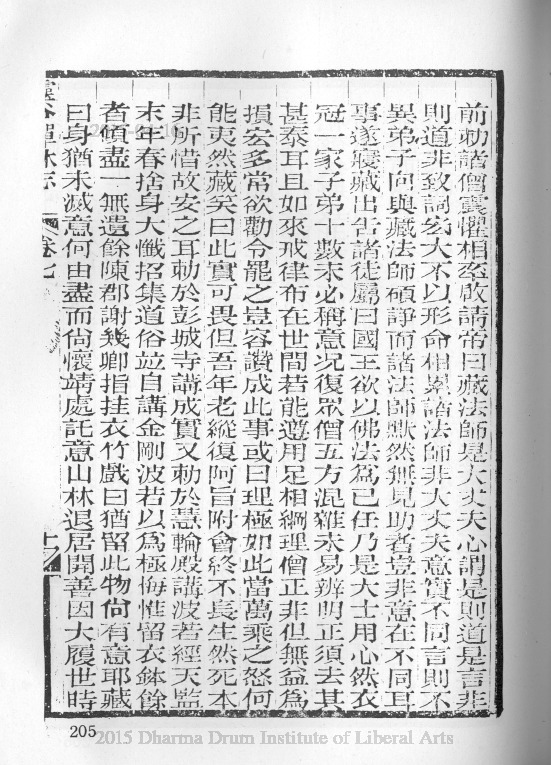 前勅諸僧震懼相率啟請帝曰藏法師是大丈夫心謂是則道是言非
則道非致詞宏大不以形命相累諸法師非大丈夫意實不同言則不
異弟子向與藏法師碩諍而諸法師默然無見助者豈非意在不同耳
事遂寢藏出告諸徒屬曰國王欲以佛法為己任乃是大士用心然衣
冠一家子弟十數未必稱意況復眾僧五方混雜未易辨明正須去其
甚泰耳且如來戒律布在世間若能遵用足相綱理僧正非但無益為
損宏多常欲勸令罷之豈容讚成此事或曰理極如此當萬乘之怒何
能夷然藏笑曰此實可畏但吾年老縱復阿旨附會終不長生然死本
非所惜故安之耳勅於彭城寺講成實又勅於慧輪殿講波若經天監
末年春捨身大懺招集道俗並自講金剛波若以為極悔惟留衣鉢餘
者傾盡一無遺餘陳郡謝幾卿指挂衣竹戲曰猶留此物尚有意耶藏
曰身猶未滅意何由盡而尚懷靖處託意山林退居開善因大履世時
卷七
205
2015 Dharma Drum Institute of Liberal Arts